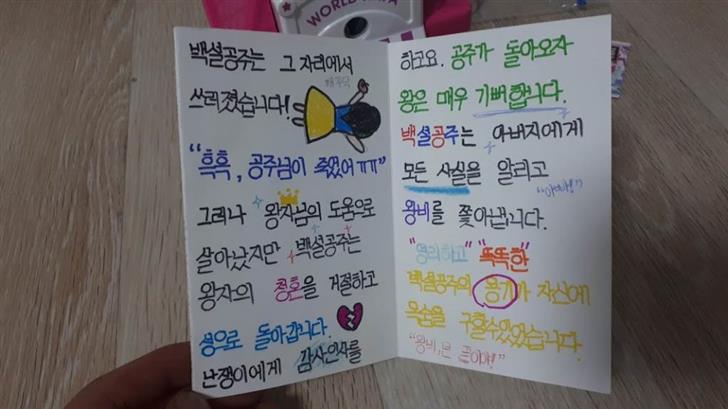 WORLD
백설공주는 그 자리에서
쓰러졌습니다!
"흑흑, 공주님이 죽었어ㅠㅠ"
그러나 왕자님의 도움으로
살아났지만 백설공주는
왕자의 청혼을 거절하고
성으로 돌아갑니다.
난쟁이에게 감사인사를
하고요. 공주가 돌아오자
왕은 매우 기뻐합니다.
백설공주는 아버지에게
모든 사실을 알리고
"아빠!"
왕비를 쫓아냅니다.
"영리하고" "똑똑한"
백설공주의 용기가 자신에
목숨을 구할수있었습니다.
"왕비, 넌 끝이야!"